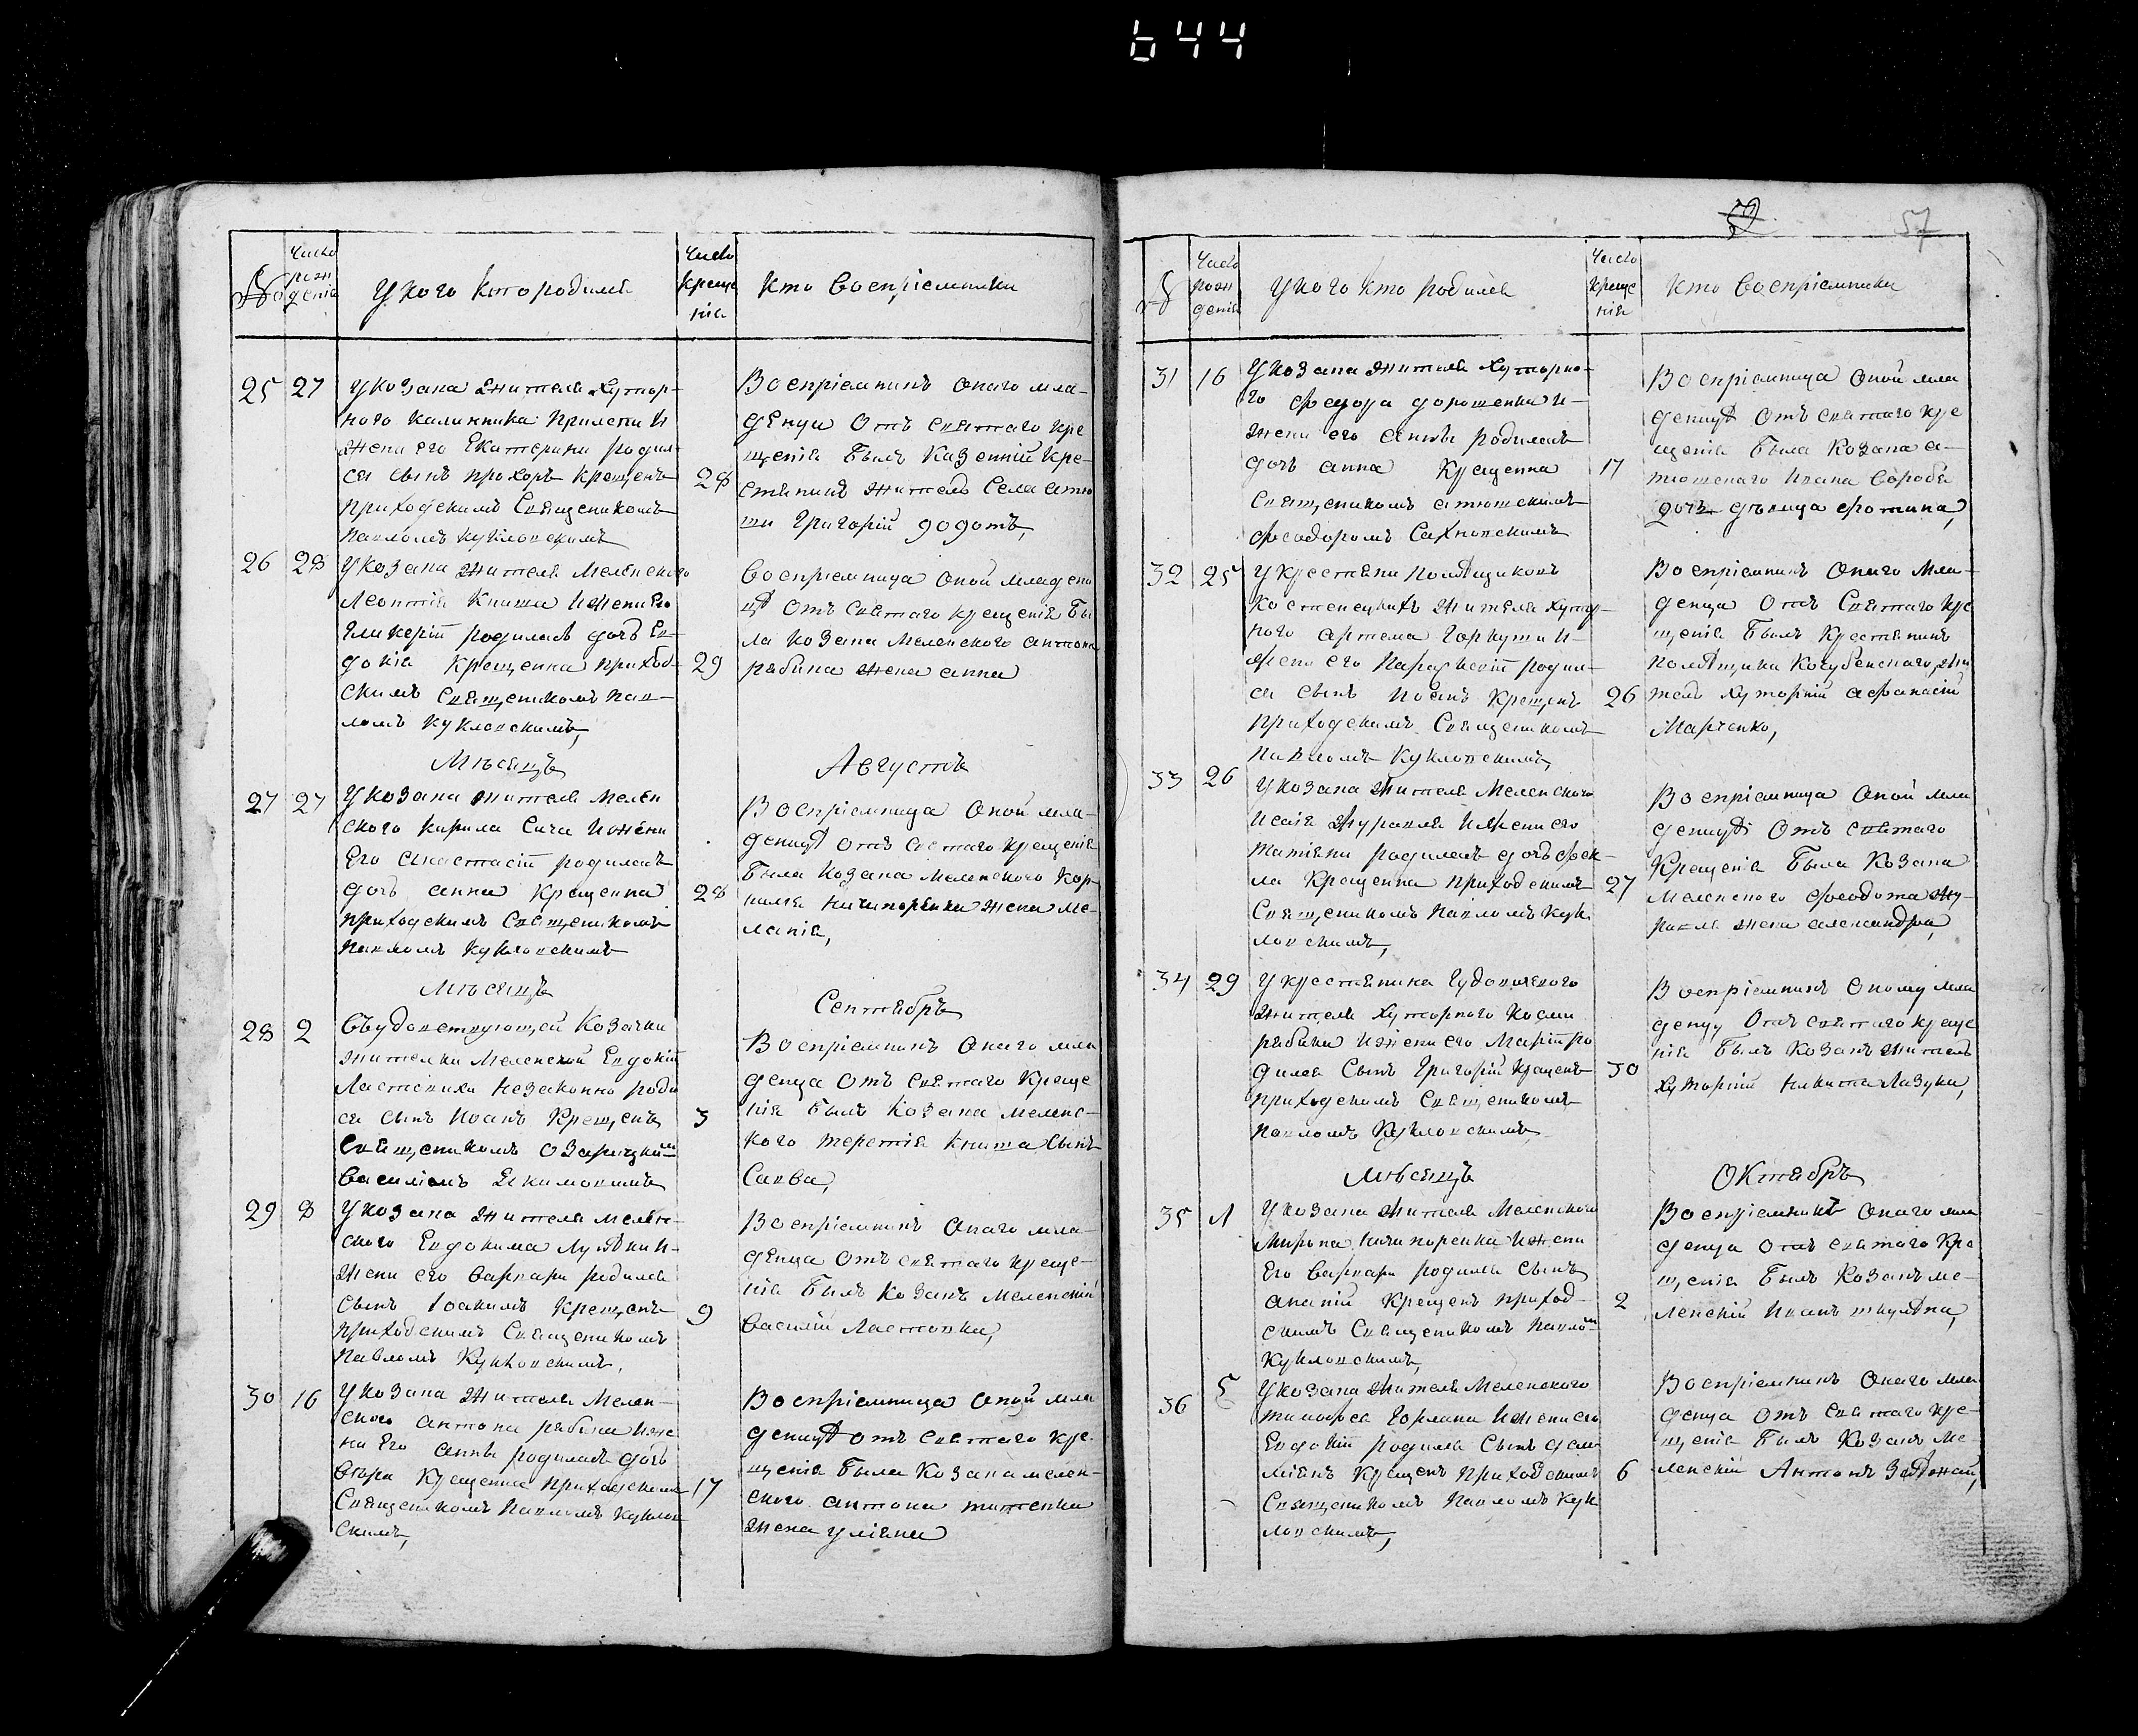 644
52
57
№
Число
рож
денія
У кого кто родился
Число
креще
нія
Кто воспріемники
25
27
У козака жителя хутор-
ного Калинника
жени его Екатерини родил-
ся сынъ Прохоръ крещенъ
28
приходскимъ священикомъ
Павломъ Кукловскимъ
Воспріемникъ онаго мла-
денца отъ святаго кре
щенія былъ казенній кре-
стянинъ житель села Атю
ши Григорій
26
28
У козака жителя Меленского
Леонтія Книша и жени его
Гликеріи родилась дочь Ев-
докія крещенна приход-
29
скимъ священикомъ Пав-
ломъ Кукловскимъ,
Воспріемница оной младени
цѣ отъ святаго крещенія бы
ла козака Меленского Антона
Рябика жена Анна
Мѣсяцъ
Августъ
27
27
У козака жителя Мелен
ского Кирила Сича и жени
его Анастасіи родилась
дочь Анна крещенна
28
приходскимъ священикомъ
Павломъ Кукловскимъ
Воспріемница оной мла-
деницѣ отъ святаго крещенія
была козака Меленского Кор-
нилія Ничипоренка жена Ме-
ланія,
Мѣсяцъ
Сентябрь
28
2
Въудовствующей козачки
жителки Меленской Евдокіи
незаконно роди
ся сынъ Иоанъ крещенъ
3
священикомъ Озарицкимъ
Василіемъ Екимовимъ
Воспріемникъ онаго мла
денца отъ святаго креще
нія былъ козака Меленс-
кого Терентія Книша сынъ
Савва,
29
8
У козака жителя Мелен-
ского Евдокима и
жени его Варвари родился
сынъ Іоакимъ крещенъ
9
приходскимъ священикомъ
Павломъ Кукловскимъ,
Воспріемникъ онаго мла-
денца отъ святаго креще-
нія былъ козакъ Меленскій
Василій Ластовка,
30
16
У козака жителя Мелен-
ского Антона Рябика и же
ни его Анны родилась дочь
крещенна приходскимъ
17
священикомъ Павломъ Куклов
скимъ,
Воспріемница оной мла
деницѣ отъ святаго кре-
щенія была козака Мелен-
ского Антона Титенка
жена Уліяна
№
Число
рож
денія
У кого кто родился
Число
креще
нія
Кто воспріемники
31
16
У козака жителя хуторно-
го Федора Дорошенка и
жени его Анны родилась
дочь Анна крещенна
17
священикомъ Атюшскимъ
Феодоромъ Сахновскимъ
Воспріемница оной мла
деницѣ отъ святаго кре
щенія была козака а-
тюшского Ивана Воробя
дочь дѣвица Фотина,
32
25
У крестяни помѣщиковъ
жителя хутор-
ного Артема Горкуши и
жени его Параскевіи родил-
ся сынъ Иоанъ крещенъ
26
приходскимъ священикомъ
Павломъ Кукловскимъ,
Воспріемникъ онаго мла-
денца отъ святаго кре
щенія былъ крестянинъ
помѣщика Кочубейского, жи
тель хуторній Афанасій
Марченко,
33
26
У козака жителя Меленского
Исаія Журавля и жени его
Татіяни родилась дочь Фек-
ла крещенна приходскимъ
27
священикомъ Павломъ Кук
ловскимъ,
Воспріемница оной мла
деницѣ отъ святаго
крещенія была козака
Меленского Феодота Жу-
равля жена Александра,
34
29
У крестянина
жителя хуторного Косми
Рябика и жени его Маріи ро
дился сынъ Григорій крещенъ
30
приходскимъ священикомъ
Павломъ Кукловскимъ
Воспріемникъ оному мла
денцу отъ святаго креще
нія былъ козакъ житель
хуторній Никита Лазука,
Мѣсяцъ
Октябрь
35
1
У козака жителя Меленского
Мирона Ничипоренка и жени
его Варвари родился сынъ
Ананій крещенъ приход-
2
скимъ священикомъ Павломъ
Кукловскимъ,
Воспріемникъ онаго мла
денца отъ святаго кре
щенія былъ козакъ ме-
ленскій Иванъ
36
5
У козака жителя Меленского
Тимофея и жени его
Евдокіи родился сынъ Дам
міянъ крещенъ приходскимъ
6
священикомъ Павломъ Кук
ловскимъ,
Воспріемникъ онаго мла
денца отъ святаго кре-
щенія былъ козакъ Ме-
ленскій Антонъ